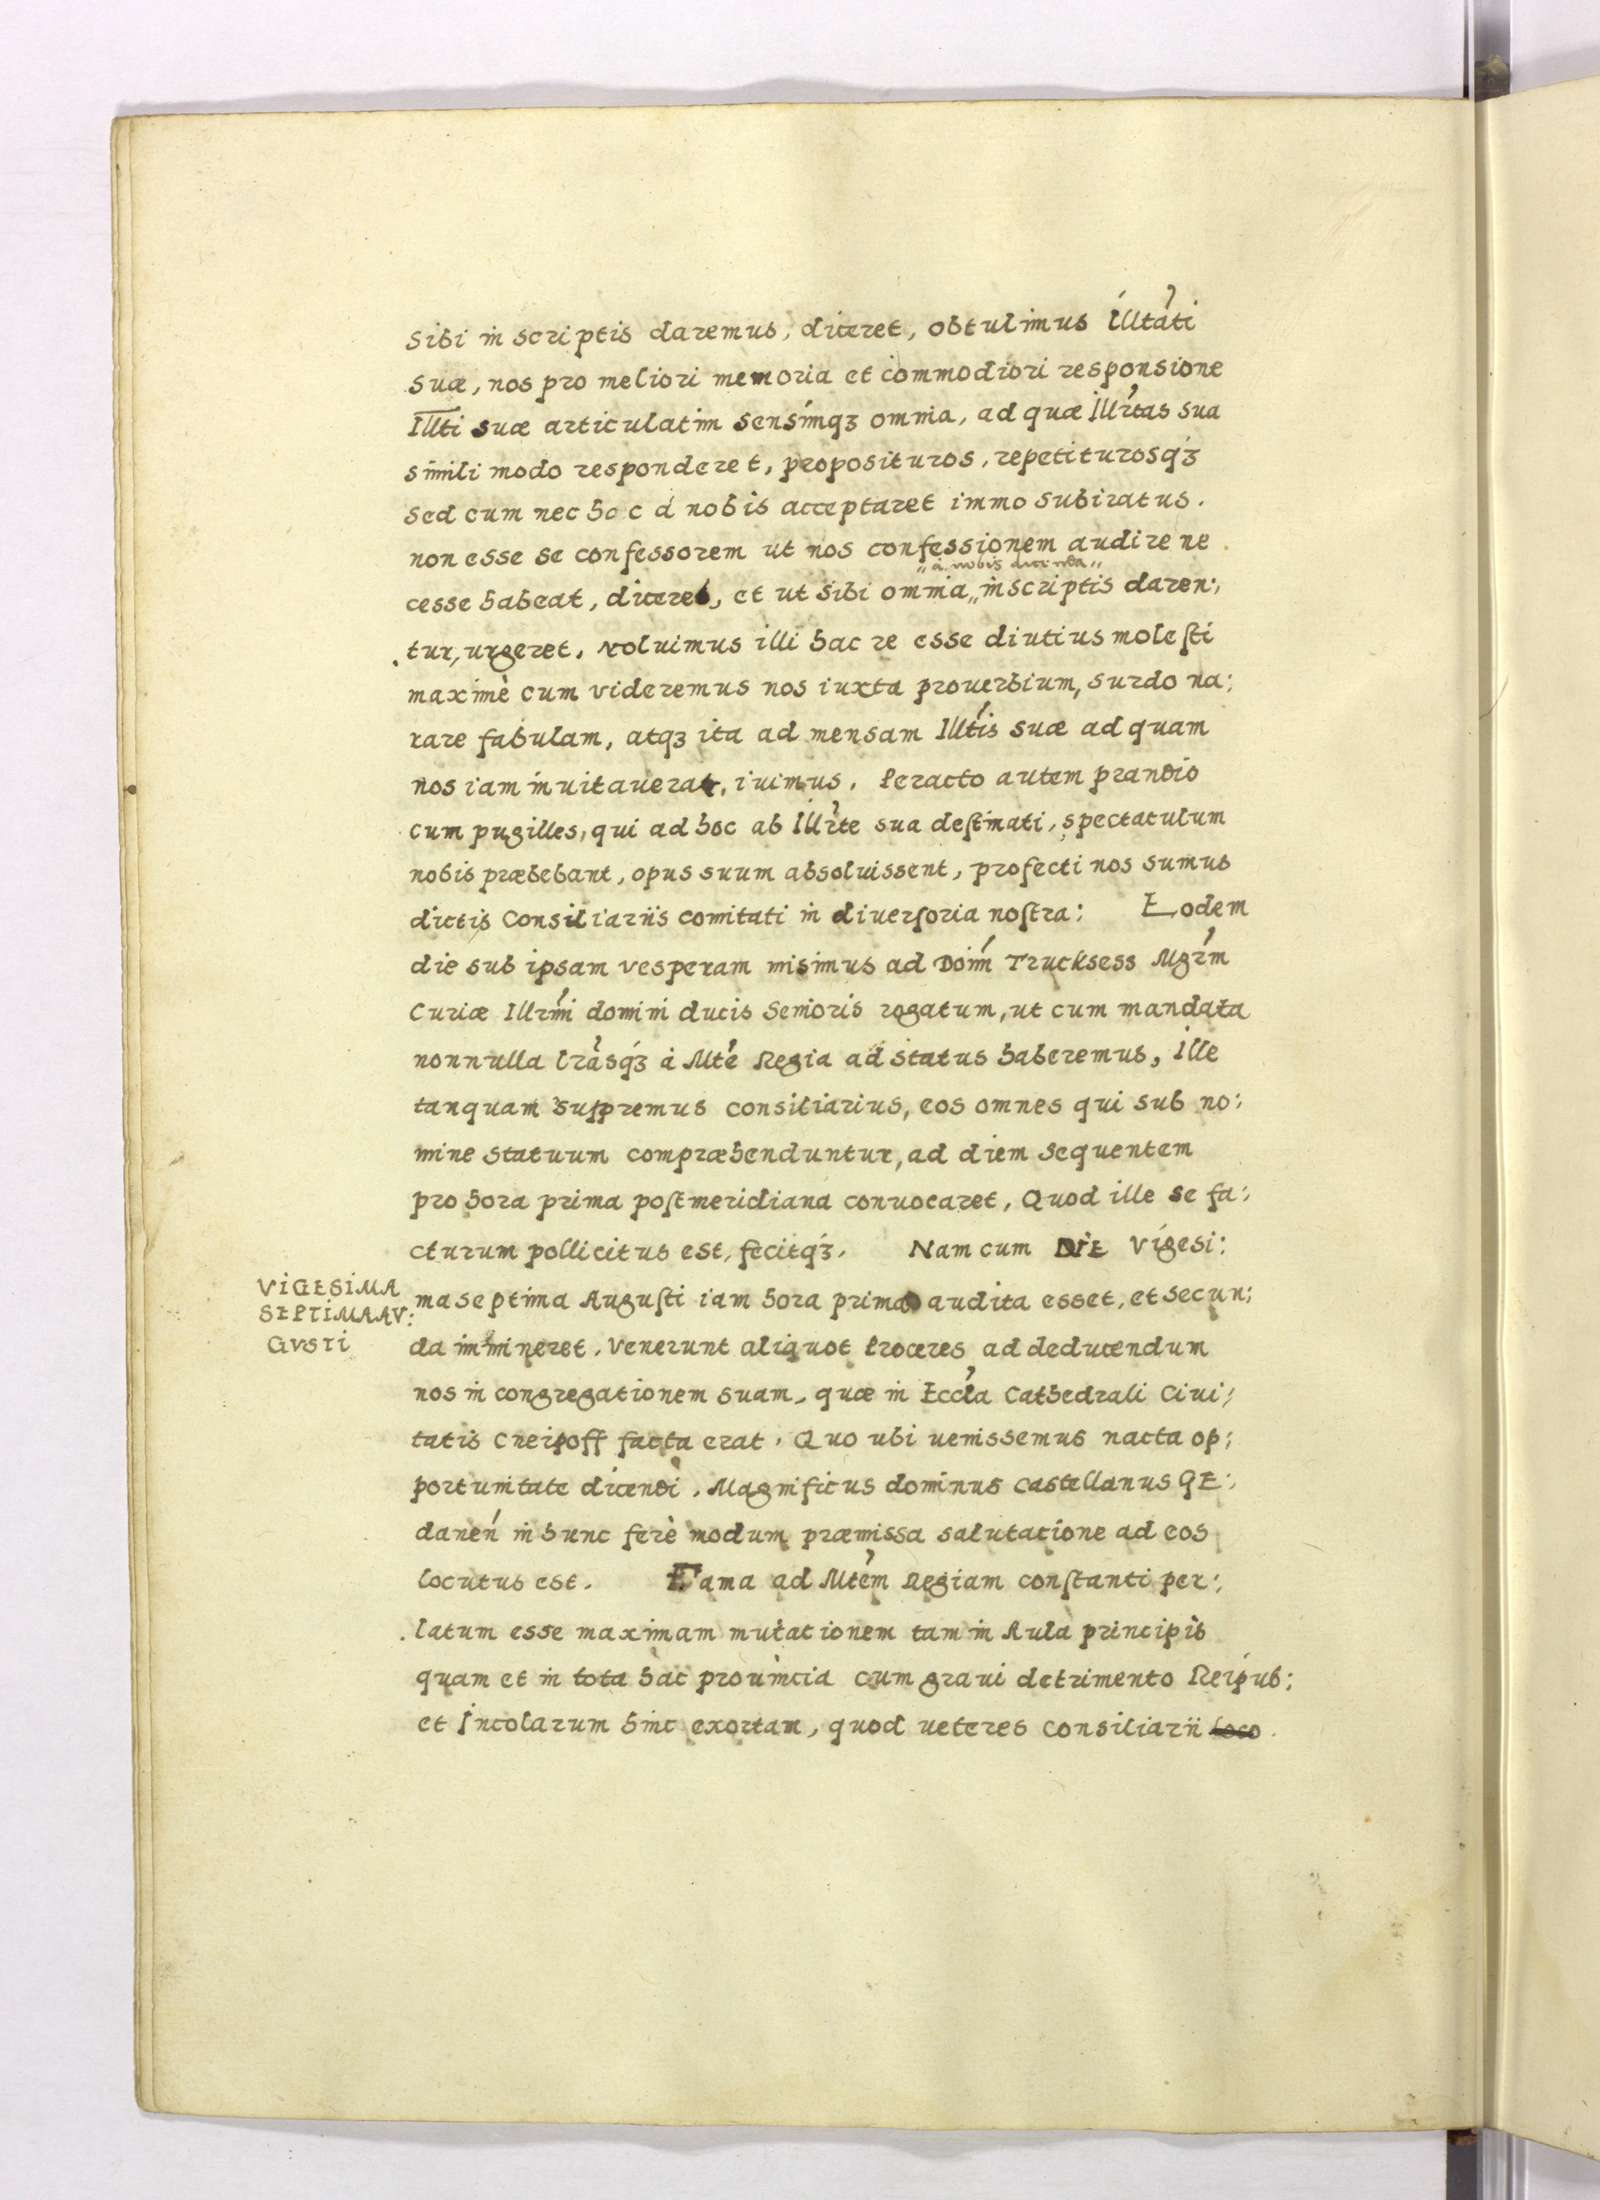 sibi in scriptis daremus, diceret, obtulimus Illtati
suæ, nos pro meliori memoria et commodiori responsione
Illti suæ articulatim sensimqꝫ omnia, ad quæ Illrtas sua
simili modo responderet, proposituros, repetiturosqꝫ
sed cum nec hoc á nobis acceptaret immo subiratus.
non esse se confessorem ut nos confessionem audire ne
„ á nobis dicenda „
cesse habeat, diceret, et ut sibi omnia „ in scriptis daren:,
tur, urgeret. Noluimus illi hac re esse diutius molesti
maximè cum videremus nos iuxta prouerbium, surdo na:
rare fabulam, atqꝫ ita ad mensam Illtis suæ ad quam
nos iam inuitauerat, iuimus. Peracto autem prandio
cum pugilles, qui ad hoc ab Illrte sua destinati, spectaculum
nobis præbebant, opus suum absoluissent, profecti nos sumus
dictis Consiliariis comitati in diuersoria nostra: Eodem
die sub ipsam vesperam misimus ad Doim Trucksess Mgrm
Curiæ Illrmi domini ducis Senioris rogatum, ut cum mandata
nonnulla lrasqꝫ á Mte Regia ad status haberemus, Ille
tanquam Suppremus consiliarius, eos omnes qui sub no:
mine statuum compræhenduntur, ad diem sequentem
pro hora prima postmeridiana conuocaret, Quod ille se fa:
cturum pollicitus est, fecitqꝫ. Nam cum DIE vigesi:
VIGESIMA
SEPTIMA AV:
GVSTI
maseptima Augusti iam hora prima audita esset, et secun:
da immineret, Venerunt aliquot Proceres ad deducendum
nos in congregationem suam, quæ in Eccla Cathedrali Ciui:
tatis Cneipoff facta erat. Quo ubi uenissemus nacta op:
portunitate dicendi, Magnificus dominus Castellanus GE:
danen in hunc ferè modum præmissa salutatione ad eos
locutus est. Fama ad Mtem Regiam constanti per:
latum esse maximam mutationem tam in Aula principis
quam et in tota hac prouincia cum graui detrimento Reipub:
et Incolarum hinc exortam, quod ueteres Consiliarii loco